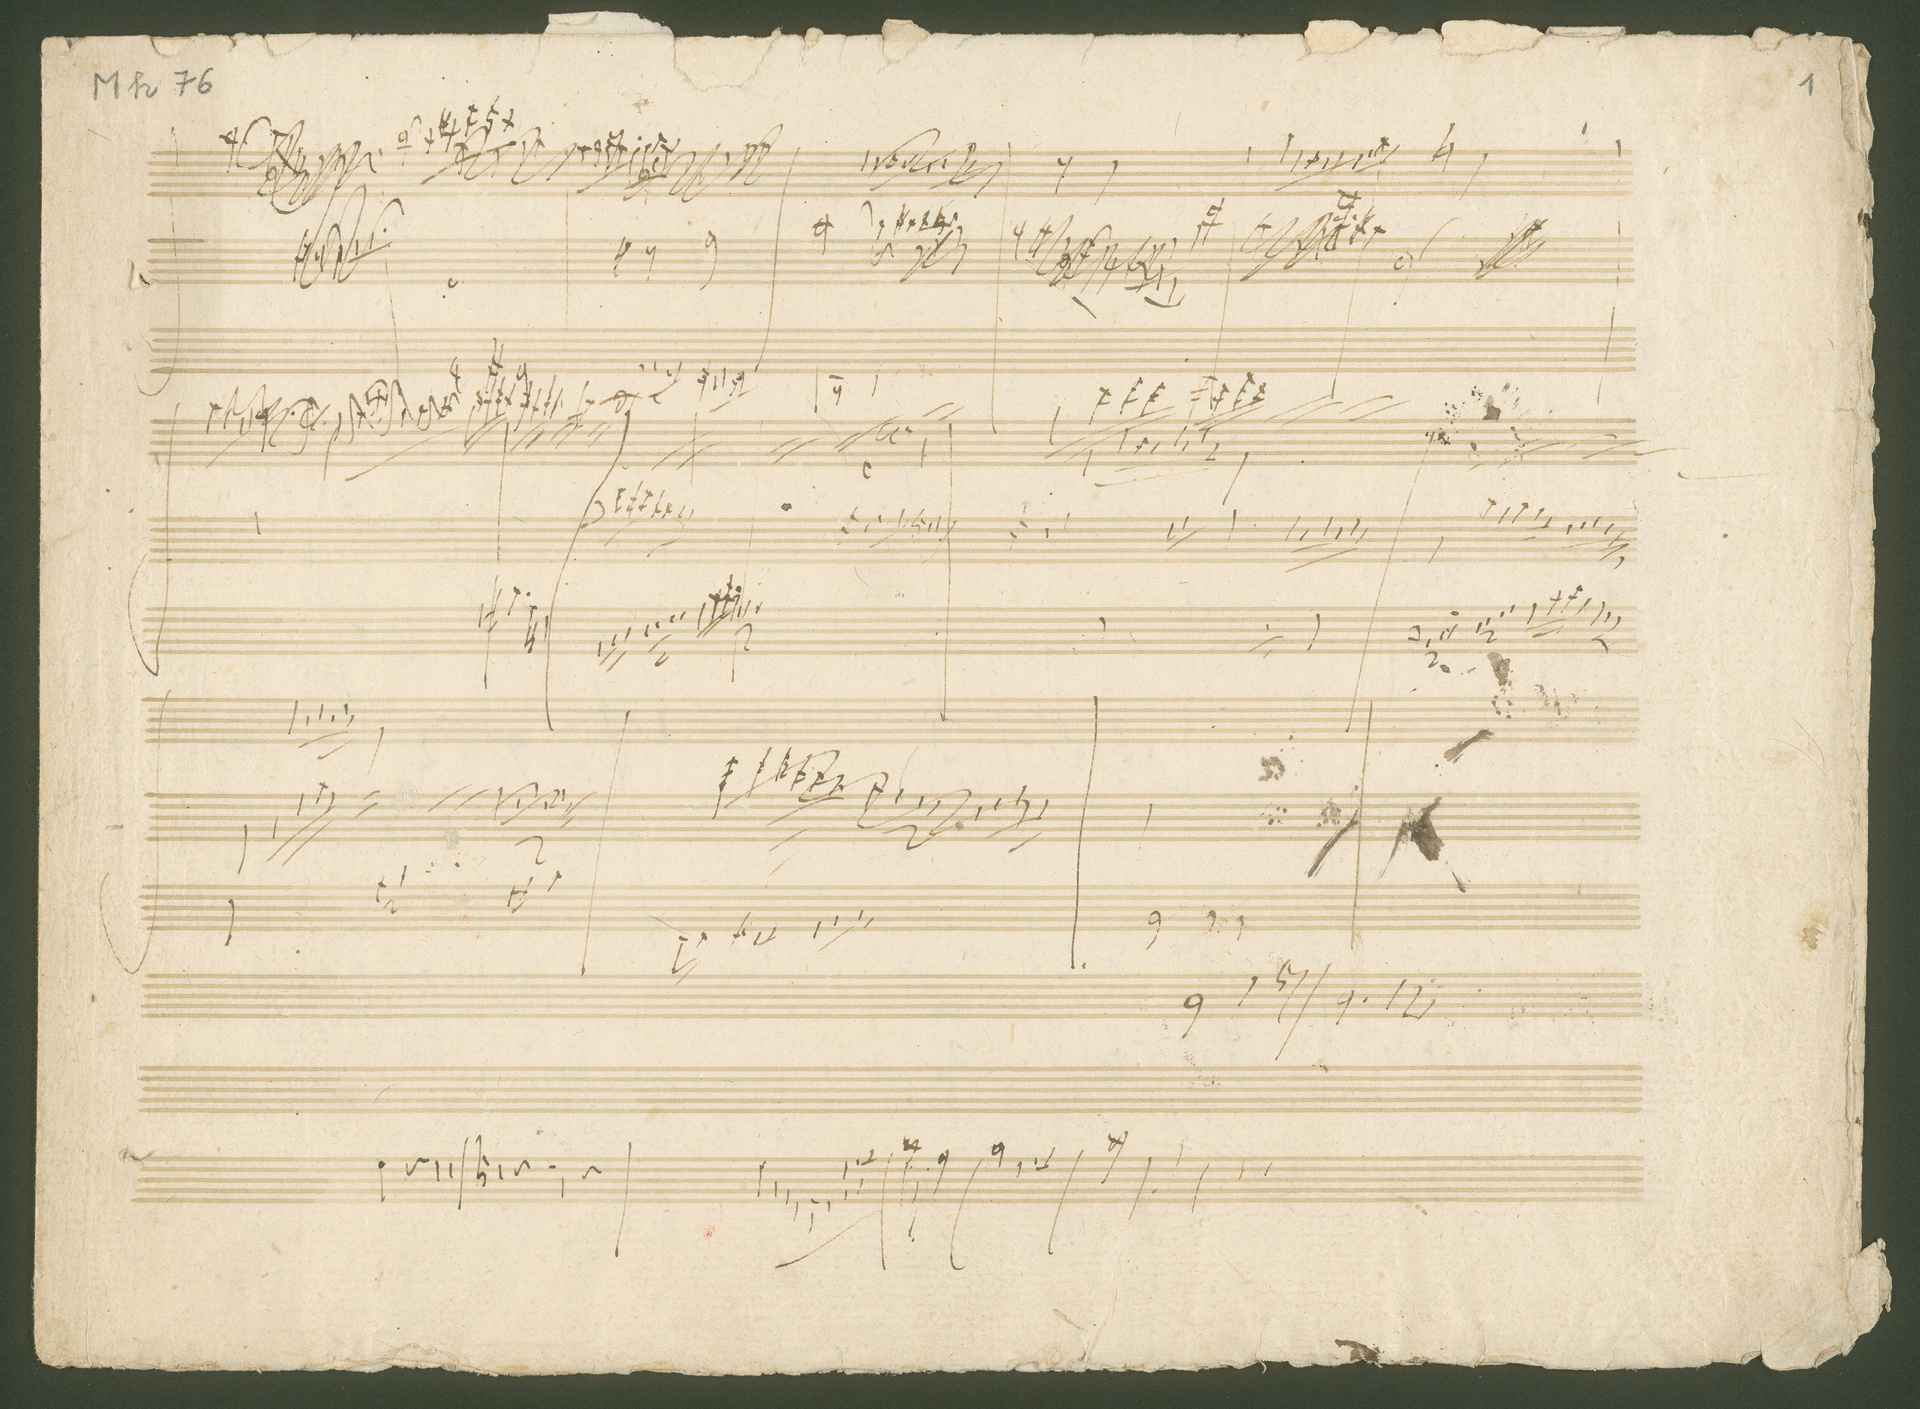 Mh 76
1